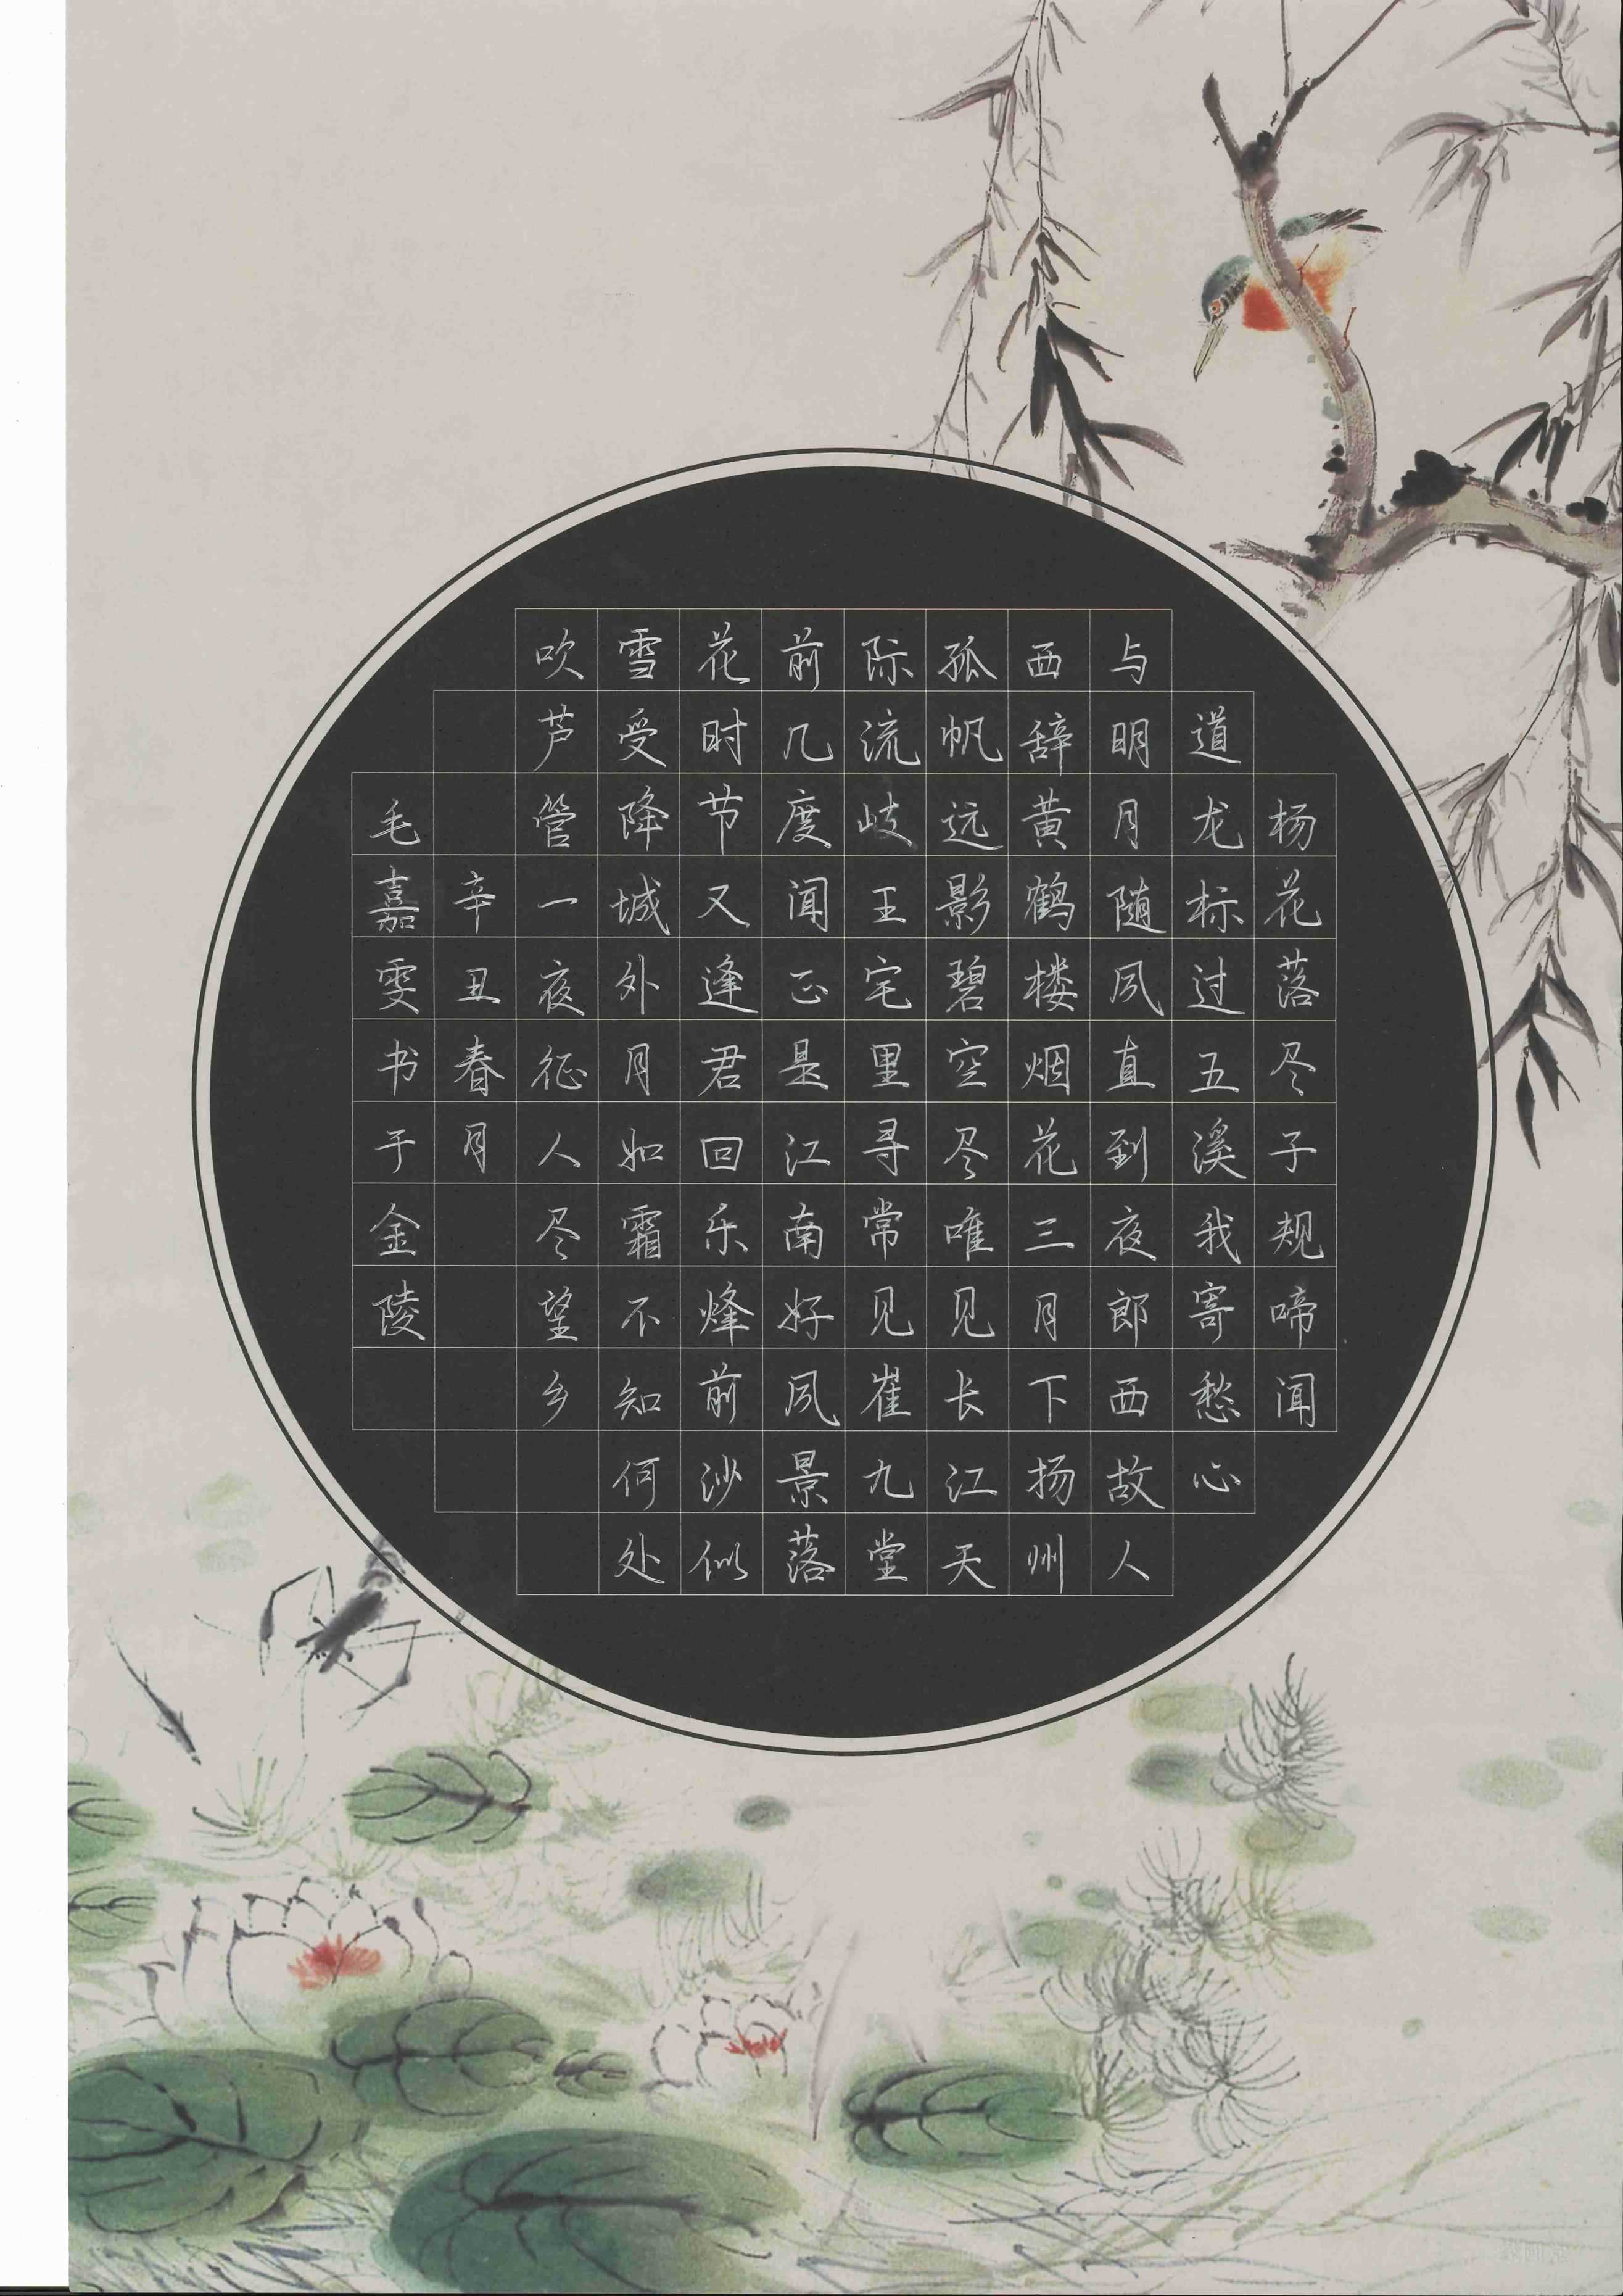 杨花落尽子规啼闻
道龙标过五溪我寄愁心
与明月随风直到夜郎西故人
西辞黄鹤楼烟花三月下扬州
孤帆远影碧空尽唯见长江天
际流岐王宅里寻常见崔九堂
前几度闻正是江南好风景落
花时节又逢君回乐烽前沙似
雪受降城外月如霜不知何处
吹芦管一夜征人尽望乡
辛丑春月
毛嘉雯书于金陵